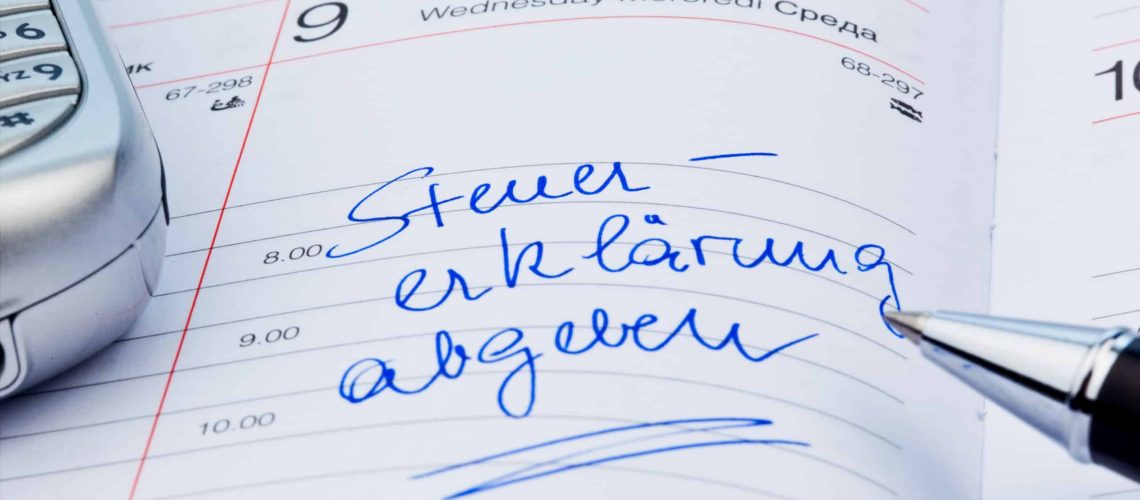 6
9 Wednesday Mercredi Среда
YZ 9
67-298
68-297
10
#
Steuer-
8.00
erklärung
9.00
abgeben
10.00